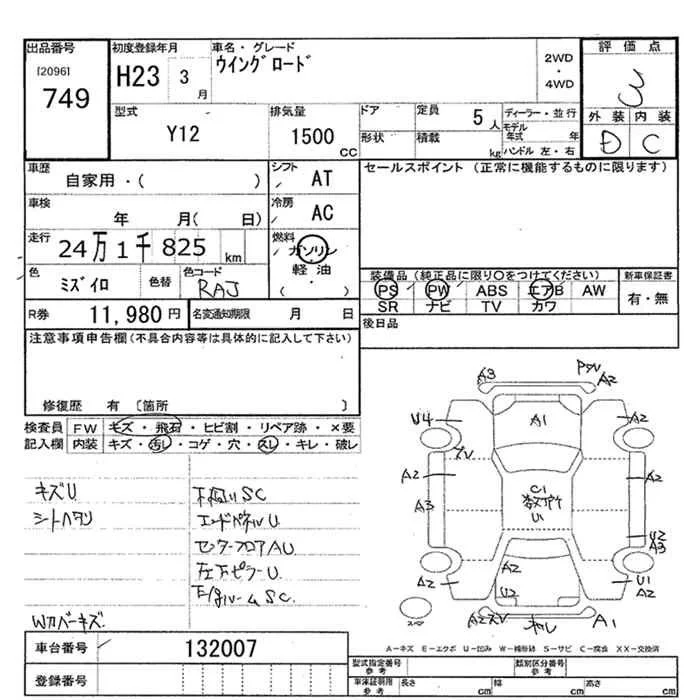 出品番号
[2096]
749
初度登録年月
H23 3 月
車名・グレード
ウイングロード
2WD
・
4WD
評価点
3
外装 内装
D C
型式
Y12
排気量
1500 CC
ドア
定員 5 人
形状
積載 kg
ディーラー・並行
モデル年式 年
ハンドル 左・右
車歴
自家用・( )
シフト
AT
車検
年 月( 日)
冷房
AC
走行
24万1千825 km
燃料
ガソリン
軽油
( ・ )
色
ミズイロ
色替
色コード
RAJ
R券 11,980円
名変通知期限 月 日
セールスポイント (正常に機能するものに限ります)
装備品 (純正品に限り○をつけてください)
PS PW ABS エアB AW
SR ナビ TV カワ
新車保証書
有・無
後日品
注意事項申告欄 (不具合内容等は具体的に記入して下さい)
修復歴 有 〔箇所 〕
検査員記入欄
FW キズ・飛石・ヒビ割・リペア跡・×要
内装 キズ・汚し・コゲ・穴・スレ・キレ・破レ
キズU
シートヘタリ
Wカバーキズ
下廻りSC
エンドパネルU
センターフロアAU
左下ピラーU
SC
A3
A2
U4
A1
A2
A2
A3
C1
U1
A2
U2
A3
A2
A2
U2
U1
A2
A2
A1
車台番号 132007
登録番号
A-キズ E-エクボ U-凹み W-補修跡 S-サビ C-腐食 XX-交換済
型式指定番号
参考
類別区分番号
車体証明限
参考
長さ cm
幅 cm
高さ cm